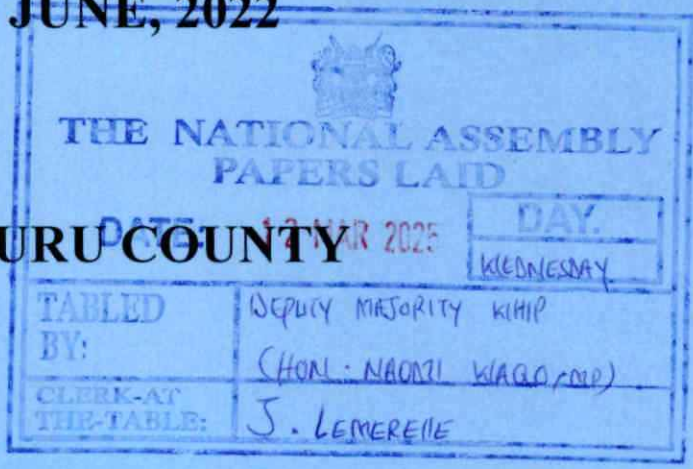 JUNE, 2022
THE NATIONAL ASSEMBLY
PAPERS LAID
DATE: 12 MAR 2025
DAY.
URU COUNTY
WEDNESDAY
TABLED BY:
DEPUTY MAJORITY WHIP
(HON. NAOMI WAQO, MP)
CLERK-AT THE-TABLE:
J. LEMERELLE